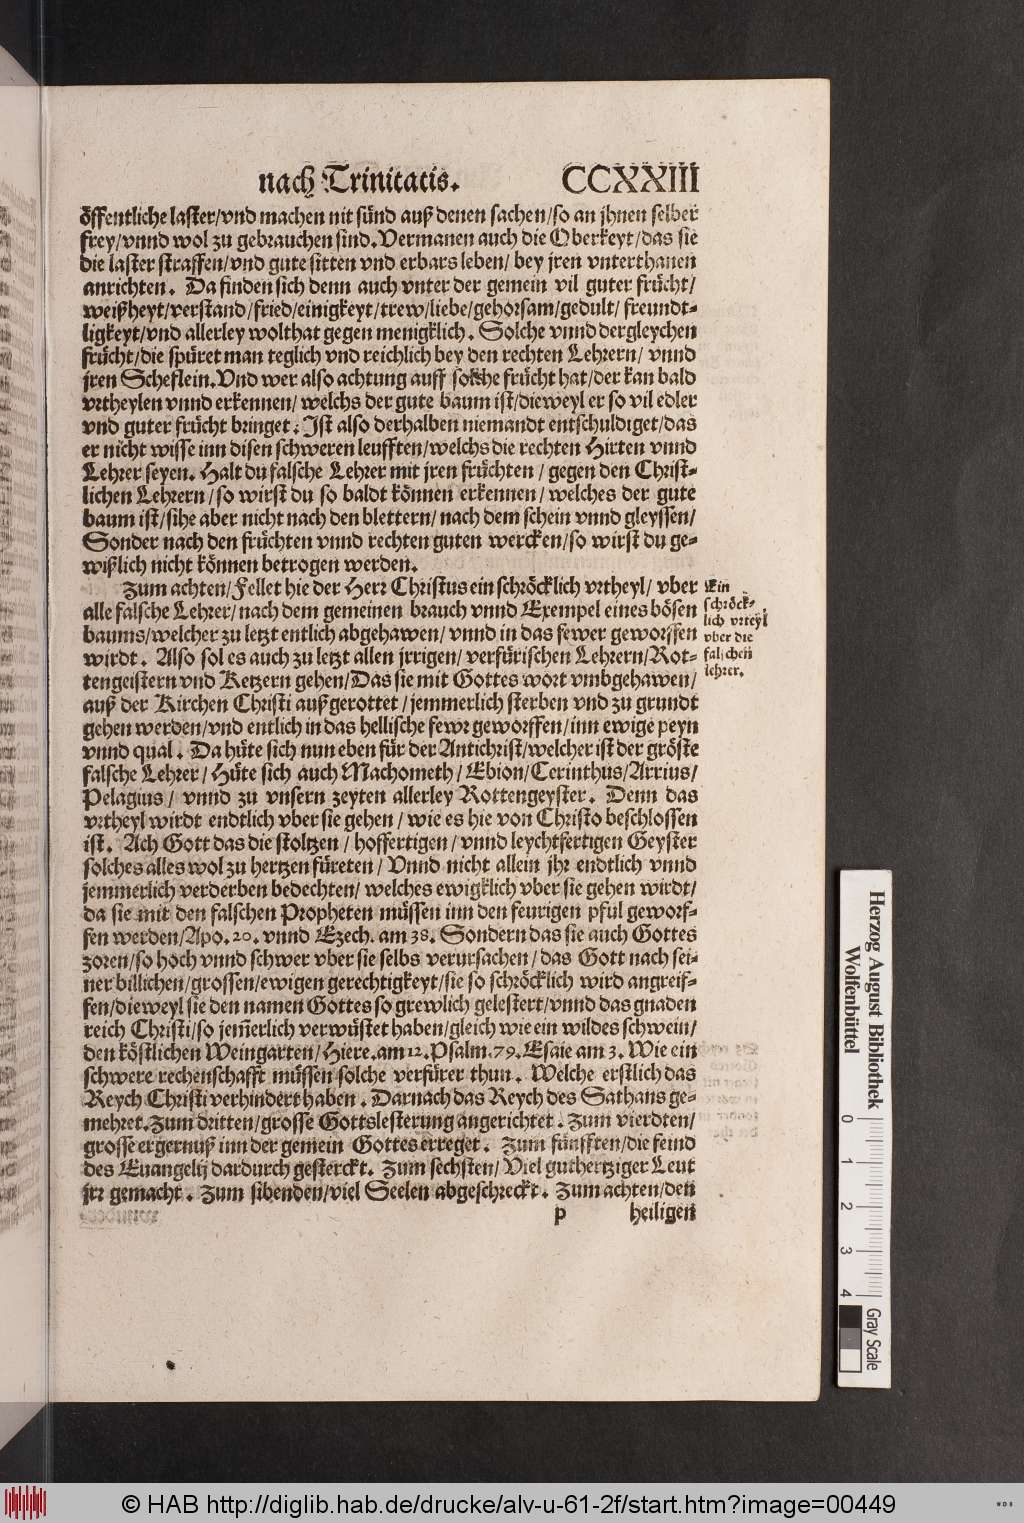 nach Trinitatis. CCXXIII
öffentliche laster/vnd machen nit sünd auß denen sachen/so an jhnen selber
frey/vnnd wol zu gebrauchen sind. Vermanen auch die Oberkeyt/das sie
die laster straffen/vnd gute sitten vnd erbars leben/bey jren vnterthanen
anrichten. Da finden sich denn auch vnter der gemein vil guter frücht/
weißheyt/verstand/fried/einigkeyt/trew/liebe/gehorsam/gedult/freundt-
ligkeyt/vnd allerley wolthat gegen menigklich. Solche vnnd dergleychen
frücht/die spüret man teglich vnd reichlich bey den rechten Lehrern/vnnd
jren Scheflein. Vnd wer also achtung auff solche frücht hat/der kan bald
vrtheylen vnnd erkennen/welchs der gute baum ist/dieweyl er so vil edler
vnd guter frücht bringet. Ist also derhalben niemandt entschuldiget/das
er nicht wisse inn disen schweren leufften/welchs die rechten Hirten vnnd
Lehrer seyen. Halt du falsche Lehrer mit jren früchten/gegen den Christ-
lichen Lehrern/so wirst du so baldt können erkennen/welches der gute
baum ist/sihe aber nicht nach den blettern/nach dem schein vnnd gleyssen/
Sonder nach den früchten vnnd rechten guten wercken/so wirst du ge-
wißlich nicht können betrogen werden.
Zum achten/Fellet hie der Herr Christus ein schröcklich vrtheyl/vber
alle falsche Lehrer/nach dem gemeinen brauch vnnd Exempel eines bösen
baums/welcher zu letzt entlich abgehawen/vnnd in das fewer geworffen
wirdt. Also sol es auch zu letzt allen jrrigen/verfürischen Lehrern/Rot-
tengeistern vnd Ketzern gehen/Das sie mit Gottes wort vmbgehawen/
auß der Kirchen Christi außgerottet/jemmerlich sterben vnd zu grundt
gehen werden/vnd entlich in das hellische fewr geworffen/inn ewige peyn
vnnd qual. Da hüte sich nun eben für der Antichrist/welcher ist der gröste
falsche Lehrer/Hüte sich auch Machometh/Ebion/Cerinthus/Arrius/
Pelagius/vnnd zu vnsern zeyten allerley Rottengeyster. Denn das
vrtheyl wirdt endtlich vber sie gehen/wie es hie von Christo beschlossen
ist. Ach Gott das die stoltzen/hoffertigen/vnnd leychtfertigen Geyster
solches alles wol zu hertzen füreten/Vnnd nicht allein jhr endtlich vnnd
jemmerlich verderben bedechten/welches ewigklich vber sie gehen wirdt/
da sie mit den falschen Propheten müssen inn den feurigen pful geworf-
fen werden/Apo. 20. vnnd Ezech. am 38. Sondern das sie auch Gottes
zoren/so hoch vnnd schwer vber sie selbs verursachen/das Gott nach sei-
ner billichen/grossen/ewigen gerechtigkeyt/sie so schröcklich wird angreif-
fen/dieweyl sie den namen Gottes so grewlich gelestert/vnnd das gnaden
reich Christi/so jem̃erlich verwüstet haben/gleich wie ein wildes schwein/
den köstlichen Weingarten/Hiere. am 12. Psalm. 79. Esaie am 3. Wie ein
schwere rechenschafft müssen solche verfürer thun. Welche erstlich das
Reych Christi verhindert haben. Darnach das Reych des Sathans ge-
mehret. Zum dritten/grosse Gottslesterung angerichtet. Zum vierdten/
grosse ergernuß inn der gemein Gottes erreget. Zum fünfften/die feind
des Euangelij dardurch gesterckt. Zum sechsten/Viel guthertziger Leut
jrr gemacht. Zum sibenden/viel Seelen abgeschreckt. Zum achten/den
p heiligen
Ein
schröck-
lich vrteyl
vber die
falschen
lehrer.
Herzog August Bibliothek
Wolfenbüttel
0 1 2 3 4
Gray Scale
© HAB http://diglib.hab.de/drucke/alv-u-61-2f/start.htm?image=00449